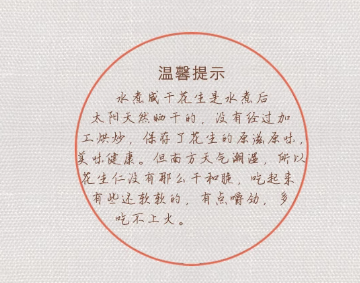 温馨提示
水煮咸干花生是水煮后
太阳天然晒干的，没有经过加
工烘炒，保存了花生的原滋原味，
美味健康。但南方天气潮湿，所以
花生仁没有那么干和脆，吃起来
有些还软软的，有点嚼劲，多
吃不上火。